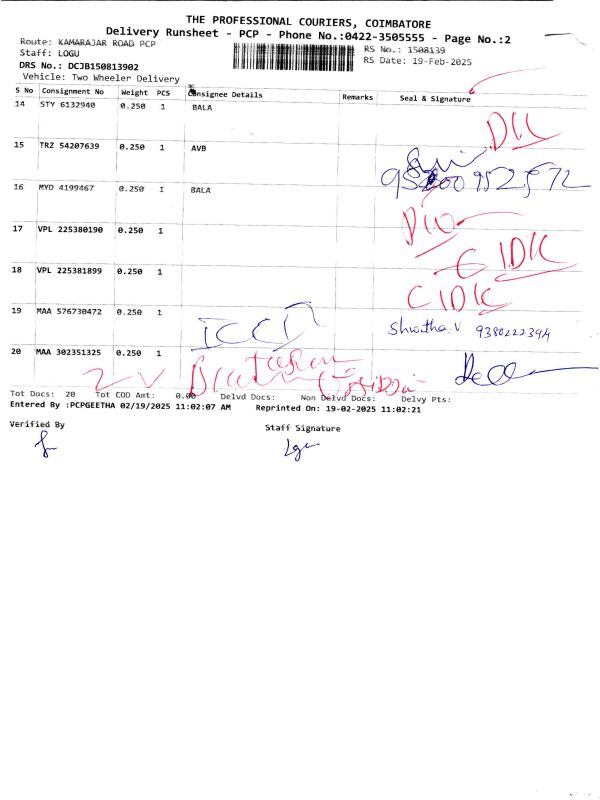 THE PROFESSIONAL COURIERS, COIMBATORE
Delivery Runsheet - PCP - Phone No.:0422-3505555 - Page No.:2
Route: KAMARAJAR ROAD PCP
RS No.: 1508139
Staff: LOGU
RS Date: 19-Feb-2025
DRS No.: DCJB150813902
Vehicle: Two Wheeler Delivery
S No Consignment No Weight PCS Consignee Details Remarks Seal & Signature
14 STY 6132940 0.250 1 BALA
15 TRZ 54207639 0.250 1 AVB
16 MYD 4199467 0.250 1 BALA
17 VPL 225380190 0.250 1
18 VPL 225381899 0.250 1
19 MAA 576730472 0.250 1 Shwetha.V
20 MAA 302351325 0.250 1
Tot Docs: 20 Tot COD Amt: 0.00 Delvd Docs: Non Delvd Docs: Delvy Pts:
Entered By :PCPGEETHA 02/19/2025 11:02:07 AM Reprinted On: 19-02-2025 11:02:21
Verified By
Staff Signature